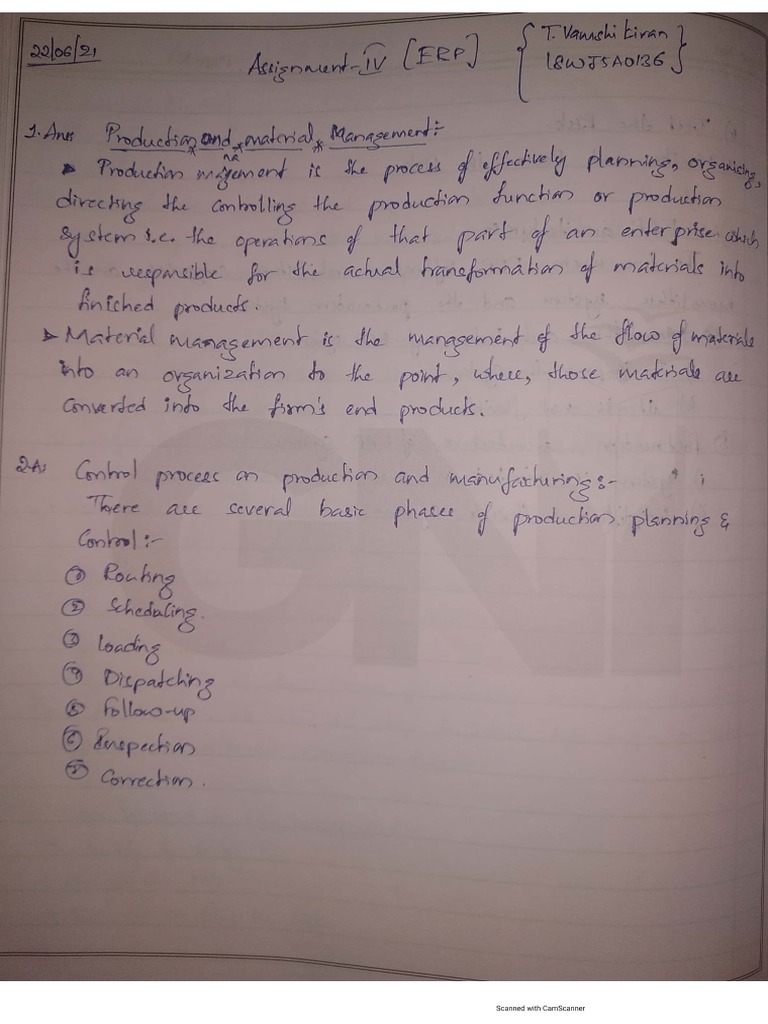 22/06/21
Assignment-IV [ERP]
{ T. Vamshi Kiran
18WJ5A0136 }
1. Ans Production and material Management:-
Production management is the process of effectively planning, organising,
directing the controlling the production function or production
system i.e. the operations of that part of an enterprise which
is responsible for the actual transformation of materials into
finished products.
Material management is the management of the flow of materials
into an organization to the point, where, those materials are
converted into the firm's end products.
2. As Control process on production and manufacturing:-
There are several basic phases of production planning &
Control:-
① Routing
② Scheduling.
③ Loading
④ Dispatching
⑤ Follow-up
⑥ Inspection
⑦ Correction.
GNI
Scanned with CamScanner